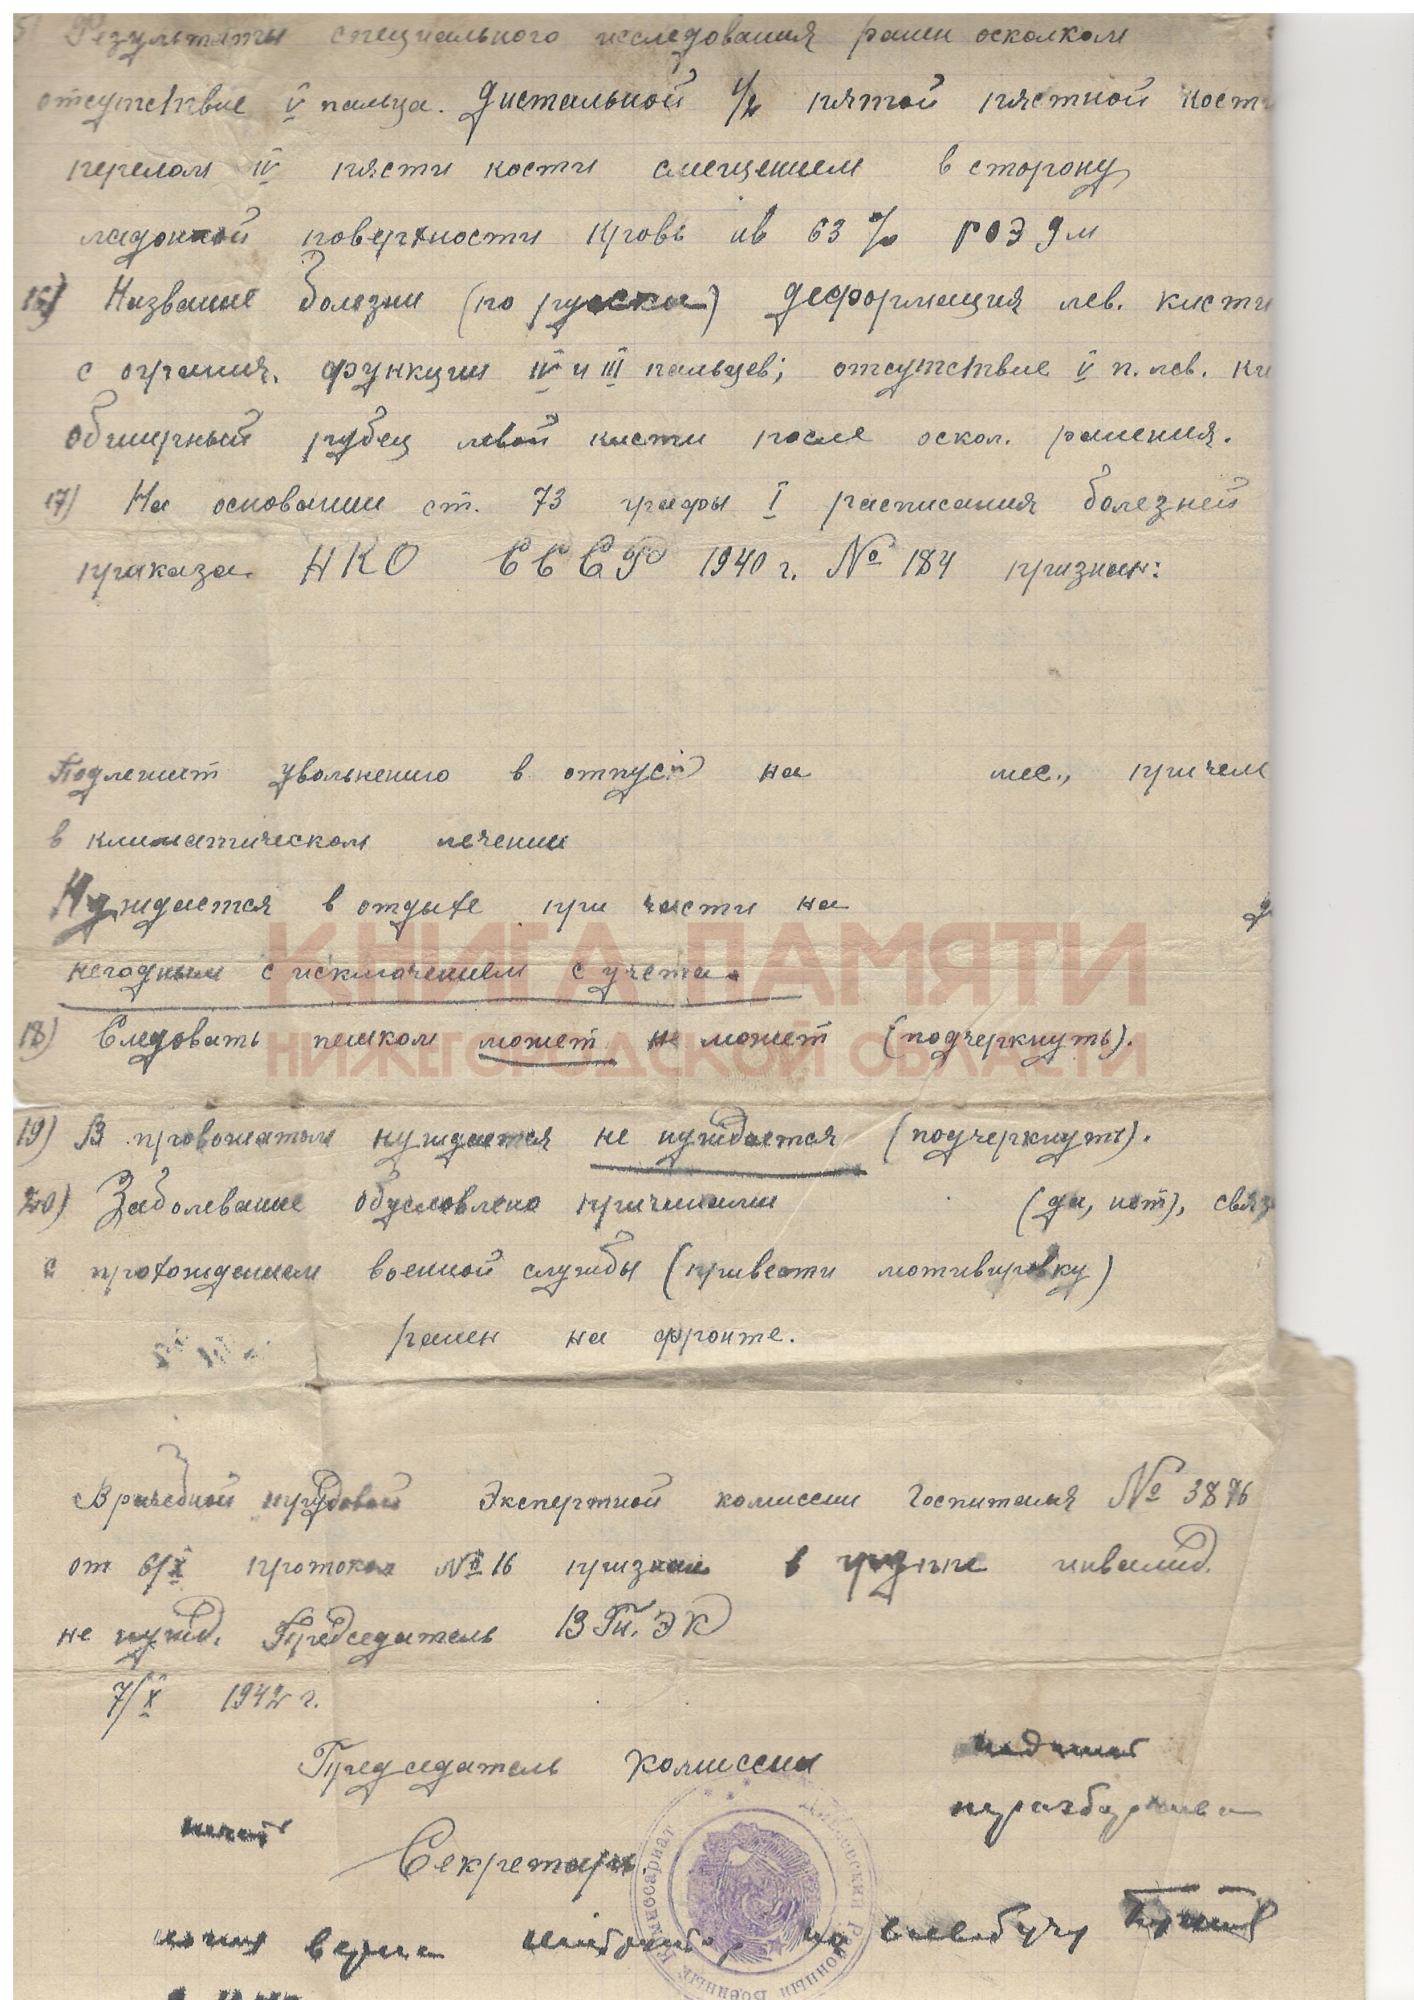 5) Результаты специального исследования ранен осколком
отсутствие V пальца. Дистальной 1/2 пятой пястной кости
перелом IV пясти кости смещением в сторону
ладонной поверхности Кровь нв 63% РОЭ 9 м
16) Название болезни (по русски) деформация лев. кисти
с огранич. функции IV и III пальцев; отсутствие V п. лев. ки
обширный рубец левой кисти после оскол. ранения.
17) На основании ст. 73 графы I расписания болезней
приказа НКО СССР 1940 г. № 184 признан:
Подлежит увольнению в отпуск на мес., причем
в климатическом лечении
Нуждается в отдыхе при части на д
негодным с исключением с учета.
18) Следовать пешком может не может (подчеркнуть).
19) В провожатом нуждается не нуждается (подчеркнуть).
20) Заболевание обусловлено причинами (да, нет), связ
с прохождением военной службы (привести мотивировку)
ранен на фронте.
Врачебной трудовой Экспертной комиссии Госпиталя № 3876
от 6/X протокол № 16 признан в группе инвалид.
не нужд. Председатель ВТ.ЭК
7/X 1942 г.
Председатель Комиссии
неразборчиво
печать
Секретарь
копия верна по всеобучу
Районный Военный Комиссариат
КНИГА ПАМЯТИ
НИЖЕГОРОДСКОЙ ОБЛАСТИ